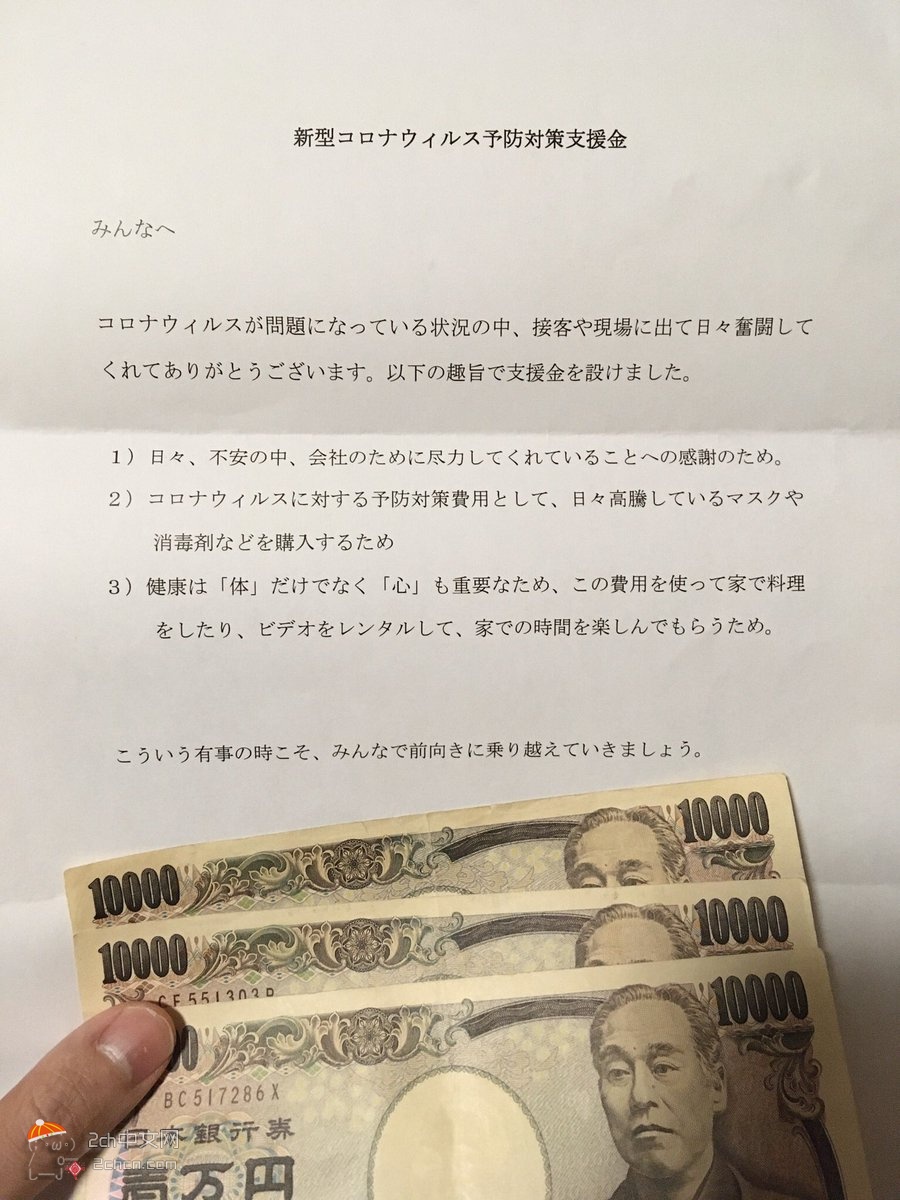 新型コロナウィルス予防対策支援金
みんなへ
コロナウィルスが問題になっている状況の中、接客や現場に出て日々奮闘して
くれてありがとうございます。以下の趣旨で支援金を設けました。
1）日々、不安の中、会社のために尽力してくれていることへの感謝のため。
2）コロナウィルスに対する予防対策費用として、日々高騰しているマスクや
消毒剤などを購入するため
3）健康は「体」だけでなく「心」も重要なため、この費用を使って家で料理
をしたり、ビデオをレンタルして、家での時間を楽しんでもらうため。
こういう有事の時こそ、みんなで前向きに乗り越えていきましょう。
10000 10000
10000 10000
551303
10000
BC517286X
日本銀行券
壱万円
2ch中文网
2chcn.com